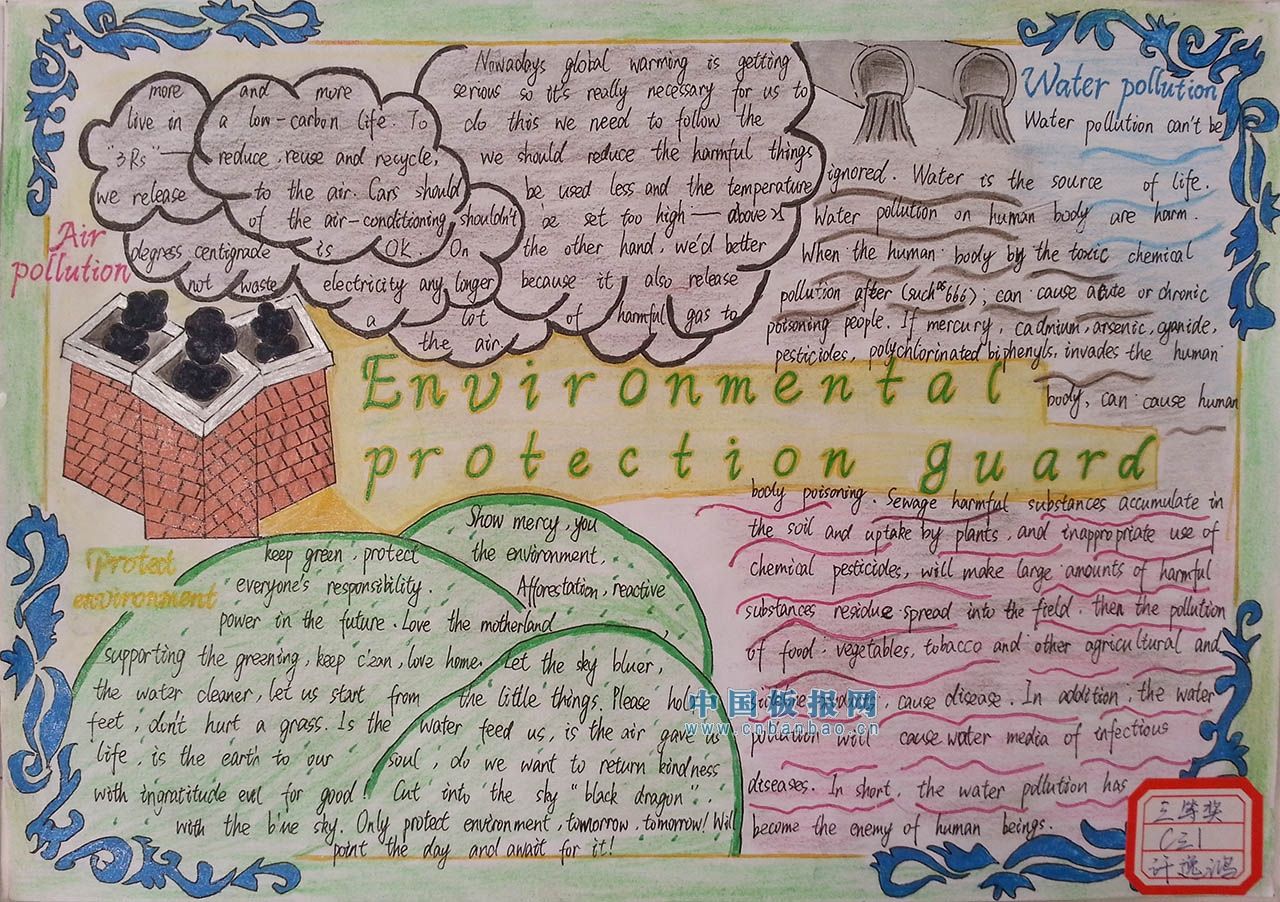 Nowadays global warming is getting
more and more serious so it's really necessary for us to
live in a low-carbon life. To do this we need to follow the
"3Rs"— reduce, reuse and recycle, we should reduce the harmful things
we release to the air. Cars should be used less and the temperature
of the air-conditioning shouldn't be set too high — above
degress centigrade is OK. On the other hand, we'd better
not waste electricity any longer because it also release
a lot of harmful gas to
the air.
Air
pollution
Water pollution
Water pollution can't be
ignored. Water is the source of life.
Water pollution on human body are harm.
When the human body by the toxic chemical
pollution after (such as 666), can cause acute or chronic
poisoning people. If mercury, cadmium, arsenic, cyanide,
pesticides, polychlorinated biphenyls, invades the human
body, can cause human
body poisoning. Sewage harmful substances accumulate in
the soil and uptake by plants, and inappropriate use of
chemical pesticides, will make large amounts of harmful
substances residue spread into the field, then the pollution
of food, vegetables, tobacco and other agricultural and
cause disease. In addition, the water
pollution will cause water media of infectious
diseases. In short, the water pollution has
become the enemy of human beings.
Environmental
protection guard
Protect
environment
Show mercy, you
keep green, protect the environment,
everyone's responsibility. Afforestation, reactive
power in the future. Love the motherland,
supporting the greening, keep clean, love home. Let the sky bluer,
the water cleaner, let us start from the little things. Please hold
feet, don't hurt a grass. Is the water feed us, is the air gave us
life, is the earth to our soul, do we want to return kindness
with ingratitude evil for good! Cut into the sky "black dragon".
with the blue sky. Only protect environment, tomorrow, tomorrow! Will
point the day and await for it!
中国板报网
www.cnbanbao.cn
三等奖
C三1
许逸鸿